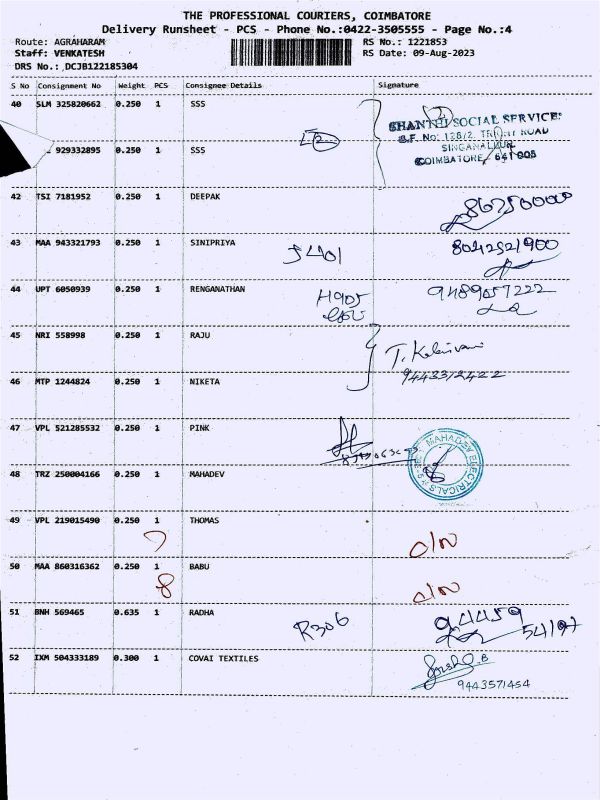 THE PROFESSIONAL COURIERS, COIMBATORE
Delivery Runsheet - PCS - Phone No.:0422-3505555 - Page No.:4
Route: AGRAHARAM RS No.: 1221853
Staff: VENKATESH RS Date: 09-Aug-2023
DRS No.: DCJB122185304
S No Consignment No Weight PCS Consignee Details Signature
40 SLM 325820662 0.250 1 SSS
SHANTHI SOCIAL SERVICE
S.F. No: 128/2, TRICHY ROAD
SINGANALLUR,
COIMBATORE, 641 005
929332895 0.250 1 SSS
42 TSI 7181952 0.250 1 DEEPAK
43 MAA 943321793 0.250 1 SINIPRIYA J401 8042521900
44 UPT 6050939 0.250 1 RENGANATHAN H905 9489057222
45 NRI 558998 0.250 1 RAJU
9443312422
46 MTP 1244824 0.250 1 NIKETA
47 VPL 521285532 0.250 1 PINK
MAHADEV ELECTRICALS
48 TRZ 250004166 0.250 1 MAHADEV
49 VPL 219015490 0.250 1 THOMAS
7
50 MAA 860316362 0.250 1 BABU
8
51 BNH 569465 0.635 1 RADHA R306 94459
54197
52 IXM 504333189 0.300 1 COVAI TEXTILES
9443571454